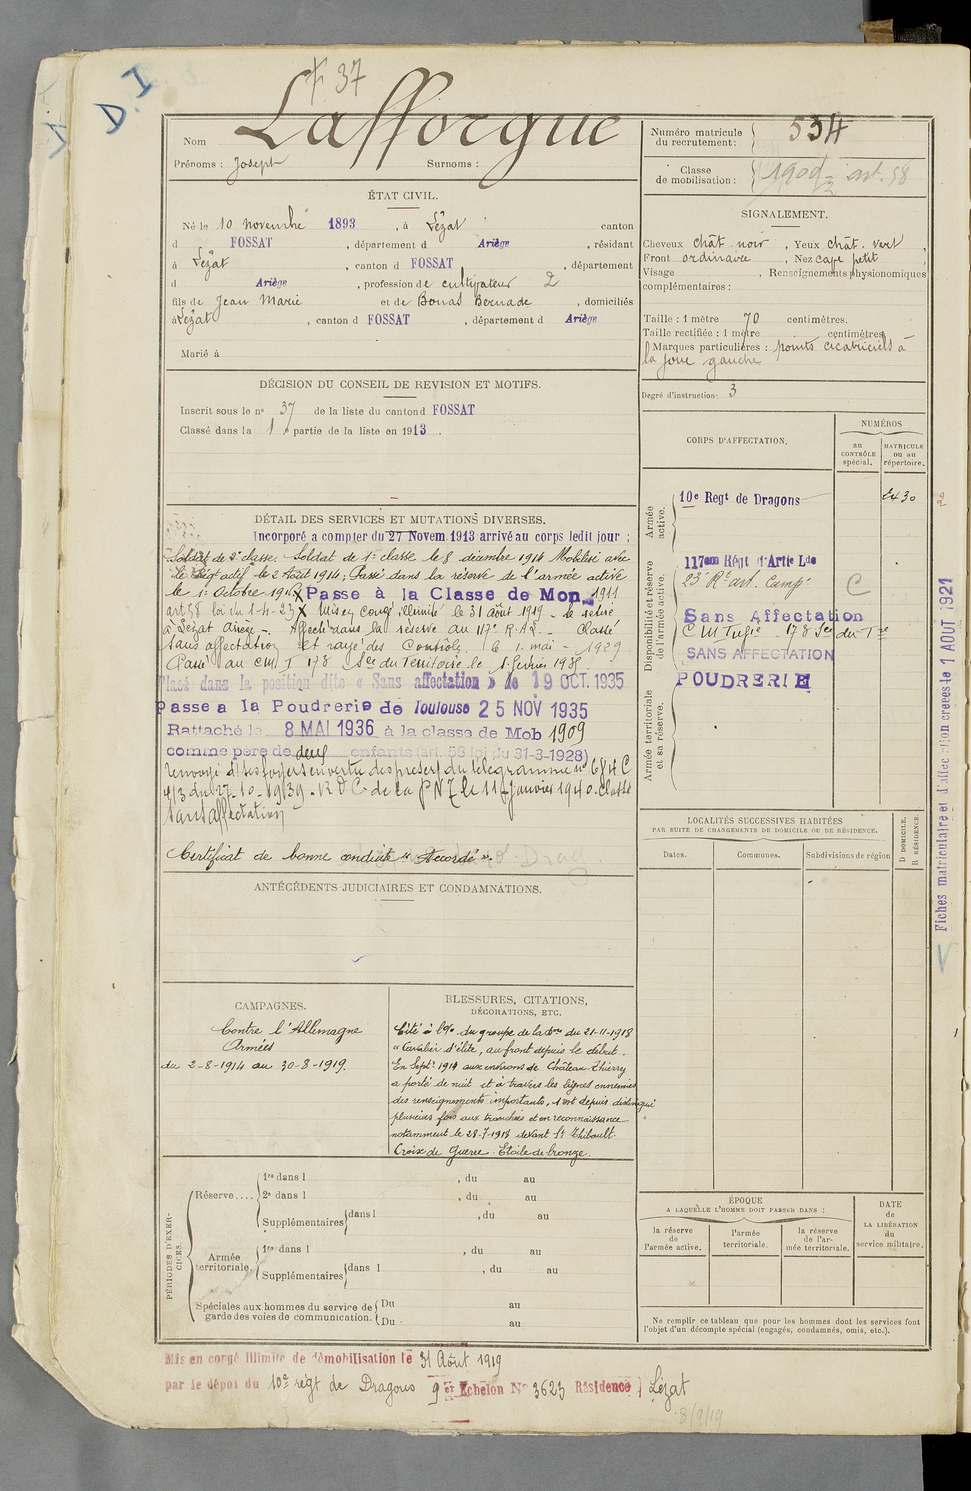 F 37
D. I
Nom Lafforgue
Prénoms : Joseph Surnoms :
Numéro matricule du recrutement : 534
Classe de mobilisation : 1909 art. 58
ÉTAT CIVIL.
Né le 10 novembre 1893, à Lézat canton
d FOSSAT, département d Ariège, résidant
à Lézat, canton d FOSSAT, département
d Ariège, profession de cultivateur 2
fils de Jean Marie et de Bonas Bernade, domiciliés
à Lézat, canton d FOSSAT, département d Ariège
Marié à
SIGNALEMENT.
Cheveux chât. noir, Yeux chât. vert,
Front ordinaire, Nez petit,
Visage , Renseignements physionomiques
complémentaires :
Taille : 1 mètre 70 centimètres.
Taille rectifiée : 1 mètre centimètres.
Marques particulières : points cicatriciels à
la joue gauche
Degré d'instruction : 3
DÉCISION DU CONSEIL DE REVISION ET MOTIFS.
Inscrit sous le n° 37 de la liste du canton d FOSSAT
Classé dans la 1 partie de la liste en 1913.
DÉTAIL DES SERVICES ET MUTATIONS DIVERSES.
Incorporé a compter du 27 Novem. 1913 arrivé au corps ledit jour ;
Soldat de 2e classe. Soldat de 1e classe le 8 décembre 1914 Mobilisé avec
le Régt actif le 2 Août 1914; Passé dans la réserve de l'armée active
le 1er Octobre 1916 X Passe à la Classe de Mob. 1911
art 58 loi du 1-4-23 X Mis en congé illimité le 31 août 1919 - se retire
à Lézat Ariège - Affecté dans la réserve au 117e R.A.L. - Classé
sans affectation et rayé des Contrôles le 1 mai - 1929
Passé au CM T 178 Son du Territoire le 1 février 1935
Placé dans la position dite « Sans affectation » le 19 OCT. 1935
Passe a la Poudrerie de Toulouse 25 NOV 1935
Rattaché le 8 MAI 1936 à la classe de Mob 1909
comme père de deux enfants (art. 58 loi du 31-3-1928)
Renvoyé dans ses foyers en vertu des prescr. du télégramme n° 684 C
4/3 du 27-10-1939 - R D C de la PN T le 11 Janvier 1940. Classé
sans affectation
Certificat de bonne conduite « Accordé ».
ANTÉCÉDENTS JUDICIAIRES ET CONDAMNATIONS.
CORPS D'AFFECTATION.
NUMÉROS
au CONTRÔLE spécial.
MATRICULE ou au répertoire.
Armée active.
10e Regt de Dragons 2430
Disponibilité et réserve de l'armée active.
117em Régt d'Artie Lde
23e Rt art. Camp. C
Sans Affectation
C M 178 Son du Tre
SANS AFFECTATION
POUDRERIE
Armée territoriale et sa réserve.
LOCALITÉS SUCCESSIVES HABITÉES
PAR SUITE DE CHANGEMENTS DE DOMICILE OU DE RÉSIDENCE.
Dates. Communes. Subdivisions de région
D DOMICILE. R RÉSIDENCE.
Fiches matriculaire et d'affectation créées le 1 AOUT 1921
CAMPAGNES.
Contre l'Allemagne
Armées
du 2-8-1914 au 30-8-1919.
BLESSURES, CITATIONS,
DÉCORATIONS, ETC.
Cité à l'o/ du groupe de la don du 21-11-1918
« Cavalier d'élite, au front depuis le début.
En Septe 1914 aux environs de Château-Thierry
a porté de nuit et à travers les lignes ennemies
des renseignements importants, s'est depuis distingué
plusieurs fois aux tranchées et en reconnaissance
notamment le 28-7-1918 devant St Thibault.
Croix de Guerre. Etoile de bronze.
PÉRIODES D'EXERCICES.
Réserve....
1re dans l , du au
2e dans l , du au
Supplémentaires dans l , du au
Armée territoriale.
1re dans l , du au
Supplémentaires dans l , du au
Spéciales aux hommes du service de garde des voies de communication.
Du au
Du au
ÉPOQUE
A LAQUELLE L'HOMME DOIT PASSER DANS :
la réserve de l'armée active.
l'armée territoriale.
la réserve de l'armée territoriale.
DATE de LA LIBÉRATION du service militaire.
Ne remplir ce tableau que pour les hommes dont les services font
l'objet d'un décompte spécial (engagés, condamnés, omis, etc.).
Mis en congé illimité de démobilisation le 31 Août 1919
par le dépôt du 10e régt de Dragons 9 er Echelon N° 3623 Résidence } Lézat
8/9/19